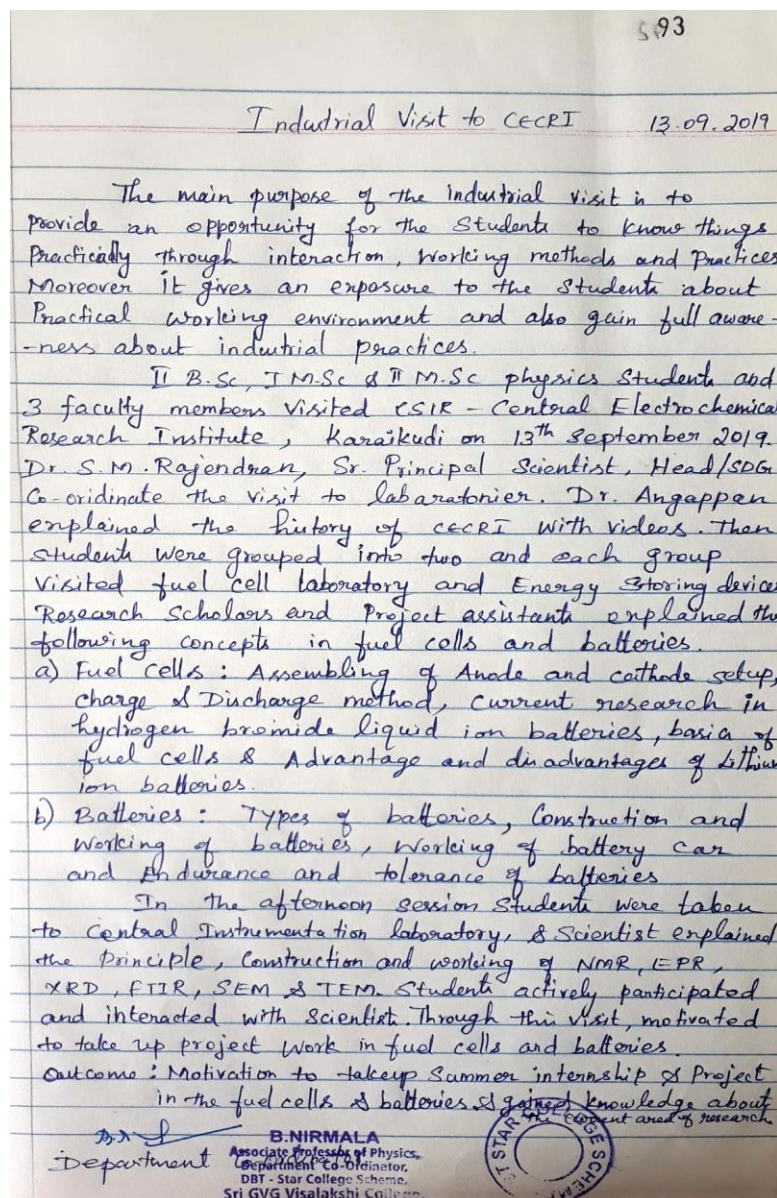 93
Industrial Visit to CECRI 13.09.2019
The main purpose of the industrial visit is to
provide an opportunity for the Students to know things
Practically through interaction, Working methods and Practices
Moreover it gives an exposure to the Students about
Practical working environment and also gain full aware-
-ness about industrial practices.
II B.Sc, I M.Sc & II M.Sc physics Students and
3 faculty members Visited CSIR - Central Electrochemical
Research Institute, Karaikudi on 13th September 2019.
Dr. S.M. Rajendran, Sr. Principal Scientist, Head/SDG
Co-oridinate the visit to labaratonier. Dr. Angappan
explained the history of CECRI with videos. Then
students were grouped into two and each group
Visited fuel cell laboratory and Energy Storing devices
Research Scholars and Project assistants explained the
following concepts in fuel cells and batteries.
a) Fuel cells : Assembling of Anode and cathode setup,
charge & Discharge method, current research in
hydrogen bromide liquid ion batteries, basia of
fuel cells & Advantage and disadvantages of Lithium
ion batteries.
b) Batteries : Types of batteries, Construction and
Working of batteries, Working of battery car
and Endurance and tolerance of batteries
In the afternoon session Students were taken
to Central Instrumentation laboratory, & Scientist explained
the Principle, Construction and working of NMR, EPR,
XRD, FTIR, SEM & TEM. Students actively participated
and interacted with Scientist. Through this visit, motivated
to take up project work in fuel cells and batteries.
Outcome : Motivation to takeup Summer internship & Project
in the fuel cells & batteries & gained knowledge about
the current area of research
B.NIRMALA
Associate Professor of Physics,
Department Co-Ordinator
Department Co-Ordinator,
DBT - Star College Scheme,
Sri GVG Visalakshi College
STAR COLLEGE SCHEME